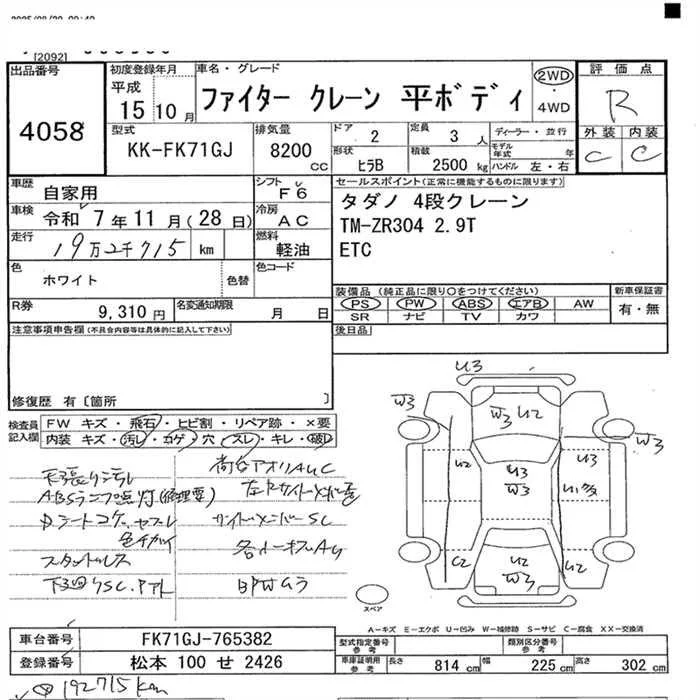 [2092]
出品番号
4058
初度登録年月
平成
15 10月
車名・グレード
ファイター クレーン 平ボディ
2WD
・
4WD
評価点
R
外装 内装
C C
型式
KK-FK71GJ
排気量
8200 CC
ドア 2
定員 3 人
ディーラー・並行
モデル年式 年
形状 ヒラB
積載 2500 kg
ハンドル 左・右
車歴 自家用
シフト F6
車検 令和 7年11月(28日)
冷房 AC
走行 19万2千715 km
燃料 軽油
色 ホワイト
色替
色コード
R券 9,310円
名変通知期限 月 日
セールスポイント(正常に機能するものに限ります)
タダノ 4段クレーン
TM-ZR304 2.9T
ETC
装備品 (純正品に限り○をつけてください)
PS PW ABS エアB AW
SR ナビ TV カワ
新車保証書
有・無
後日品
注意事項申告欄(不具合内容等は具体的に記入して下さい)
修復歴 有〔箇所 〕
検査員記入欄
FW キズ・飛石・ヒビ割・リペア跡・×要
内装 キズ・汚レ・コゲ・穴・スレ・キレ・破レ
ABSランプ点灯(修理要)
スタッドレス
U3
W3
W3 U2
W3
U2
U3
W3
U3
C2
U2
W3
U2
スペア
A-キズ E-エクボ U-凹み W-補修跡 S-サビ C-腐食 XX-交換済
車台番号 FK71GJ-765382
登録番号 松本 100 せ 2426
型式指定番号
参考
類別区分番号
参考
車庫証明用
参考
長さ 814 cm 幅 225 cm 高さ 302 cm
192715km